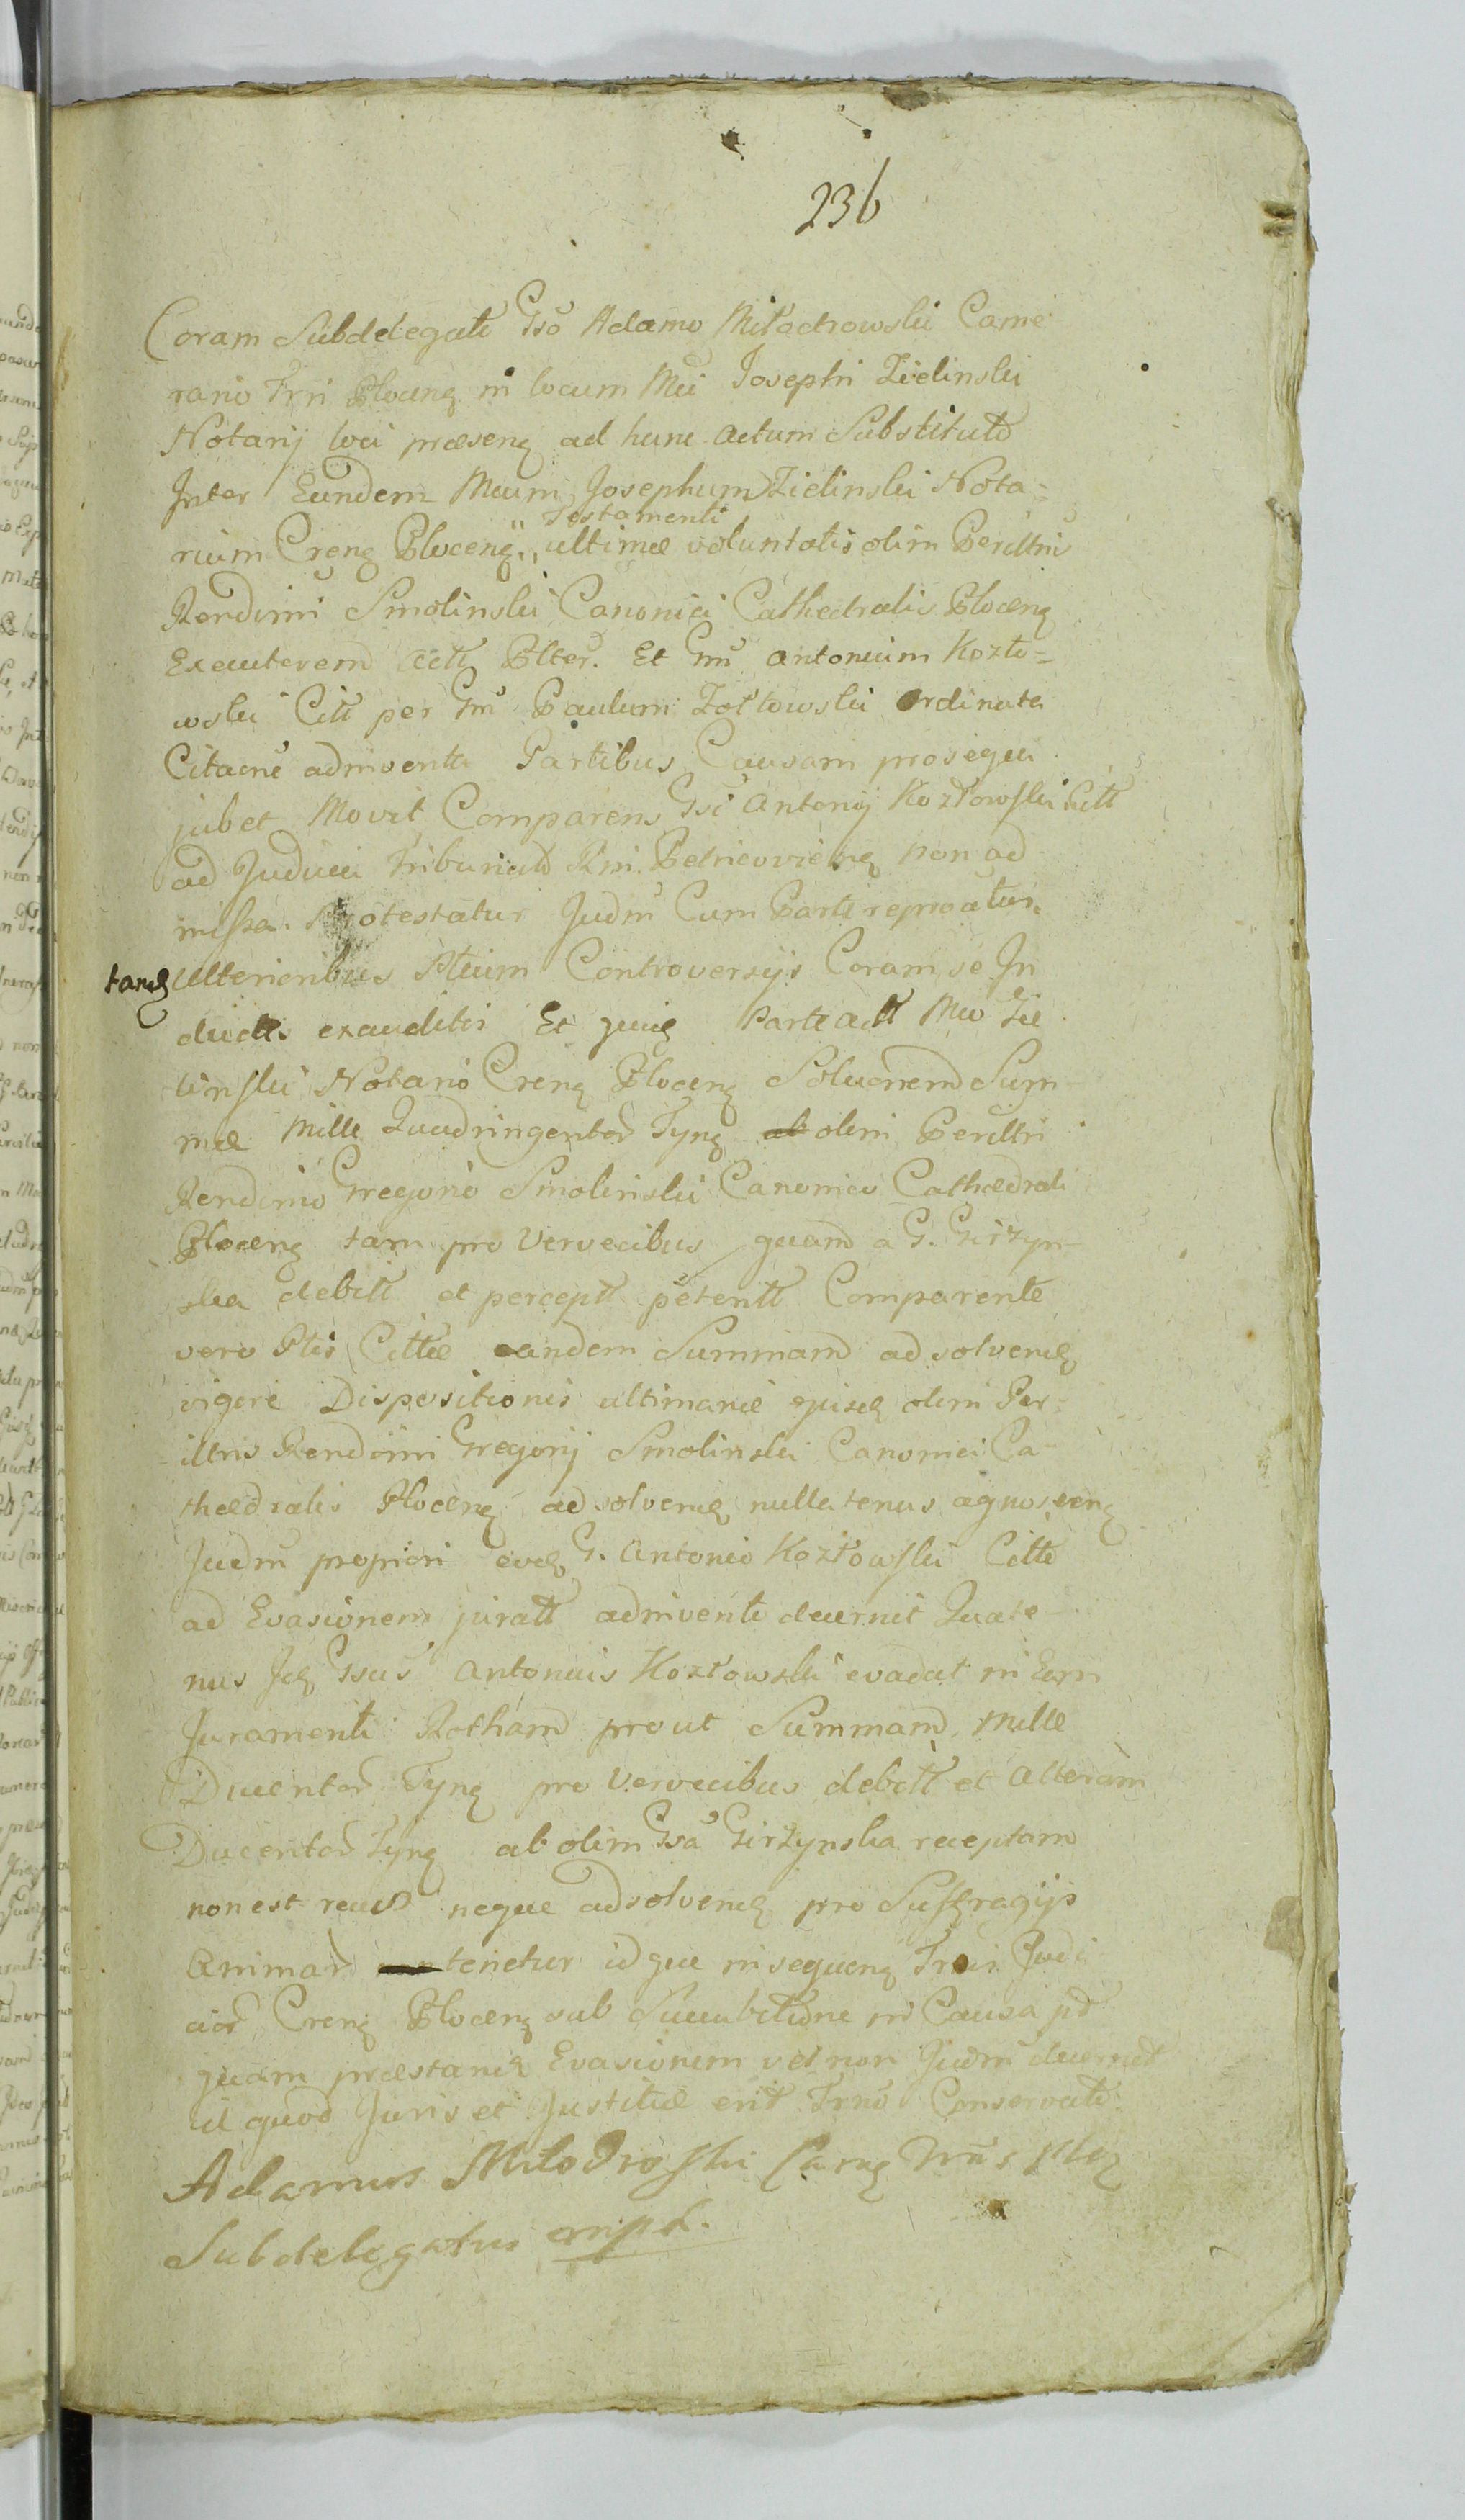 236
Coram Subdelegato Gso Adamo Miłodrowski Came
rario Trri Plocens in locum Mci Josephi Zielinski
Notarij loci præsens ad hunc actum Substituto
Inter Eundem Mcum Josephum Zielinski Nota-
Testamenti
rium Crens Plocens ultimæ voluntatis olim Perilltris
Rendimi Smolinski Canonici Cathedralis Plocens
Executorem Actt Plter. Et Gsm Antonium Kozło-
wski Citt per Gsm Paulum Zołtowski Ordinata
Citacne adinventa Partibus Causam prosequi
jubet Movit Comparens Gsi Antonij Kozłowski Citt
ad Judicia Tribunalis Rni Petricoviens non ad
missa. Protestatur Judm Cum Parte reproatur.
tand Ulterioribus Ptium Controversijs Coram se In
ductis exauditis Et quia Parte Actt Mco Zie
linski Notario Crens Plocens Solucnem Sum
mæ Mille Quadringentor Tyns ab olim Perilltri
Rendimo Gregorio Smolinski Canonico Cathedrali
Plocens tam pro Vervecibus quam a G. Girzyn-
ska debitt et perceptt petentt Comparente
vero Ptis Cittæ eandem Summam adsolvend
vigore Dispositionis ultimariæ ejusd olim Per-
illtris Rendimi Gregorij Smolinski Canonici Ca-
thedralis Plocens adsolvend nullatenus agnoscens
Judm propiori eod G. Antonio Kozłowski Citto
ad Evasionem juratt adinvento decernit Quate-
nus Id Gsus Antonius Kozłowski evadat in Eam
Juramenti Rotham prout Summam Mille
Ducentor Tyns pro Vervecibus debitt et Alteram
Ducentor Tyns ab olim Gsa Girzynska receptam
non est reus neque adsolvend pro Suffragijs
Animar tenetur idque in sequens Trris Judi
cior Crens Plocens sub Succubitione in Causa pd
quam præstand Evasionem vel non Judm decernet
id quod Juris et Justitiæ erit Trno Conservato.
Adamus Miłodroski Camr Trris Ploc
Subdelegatus mpr.